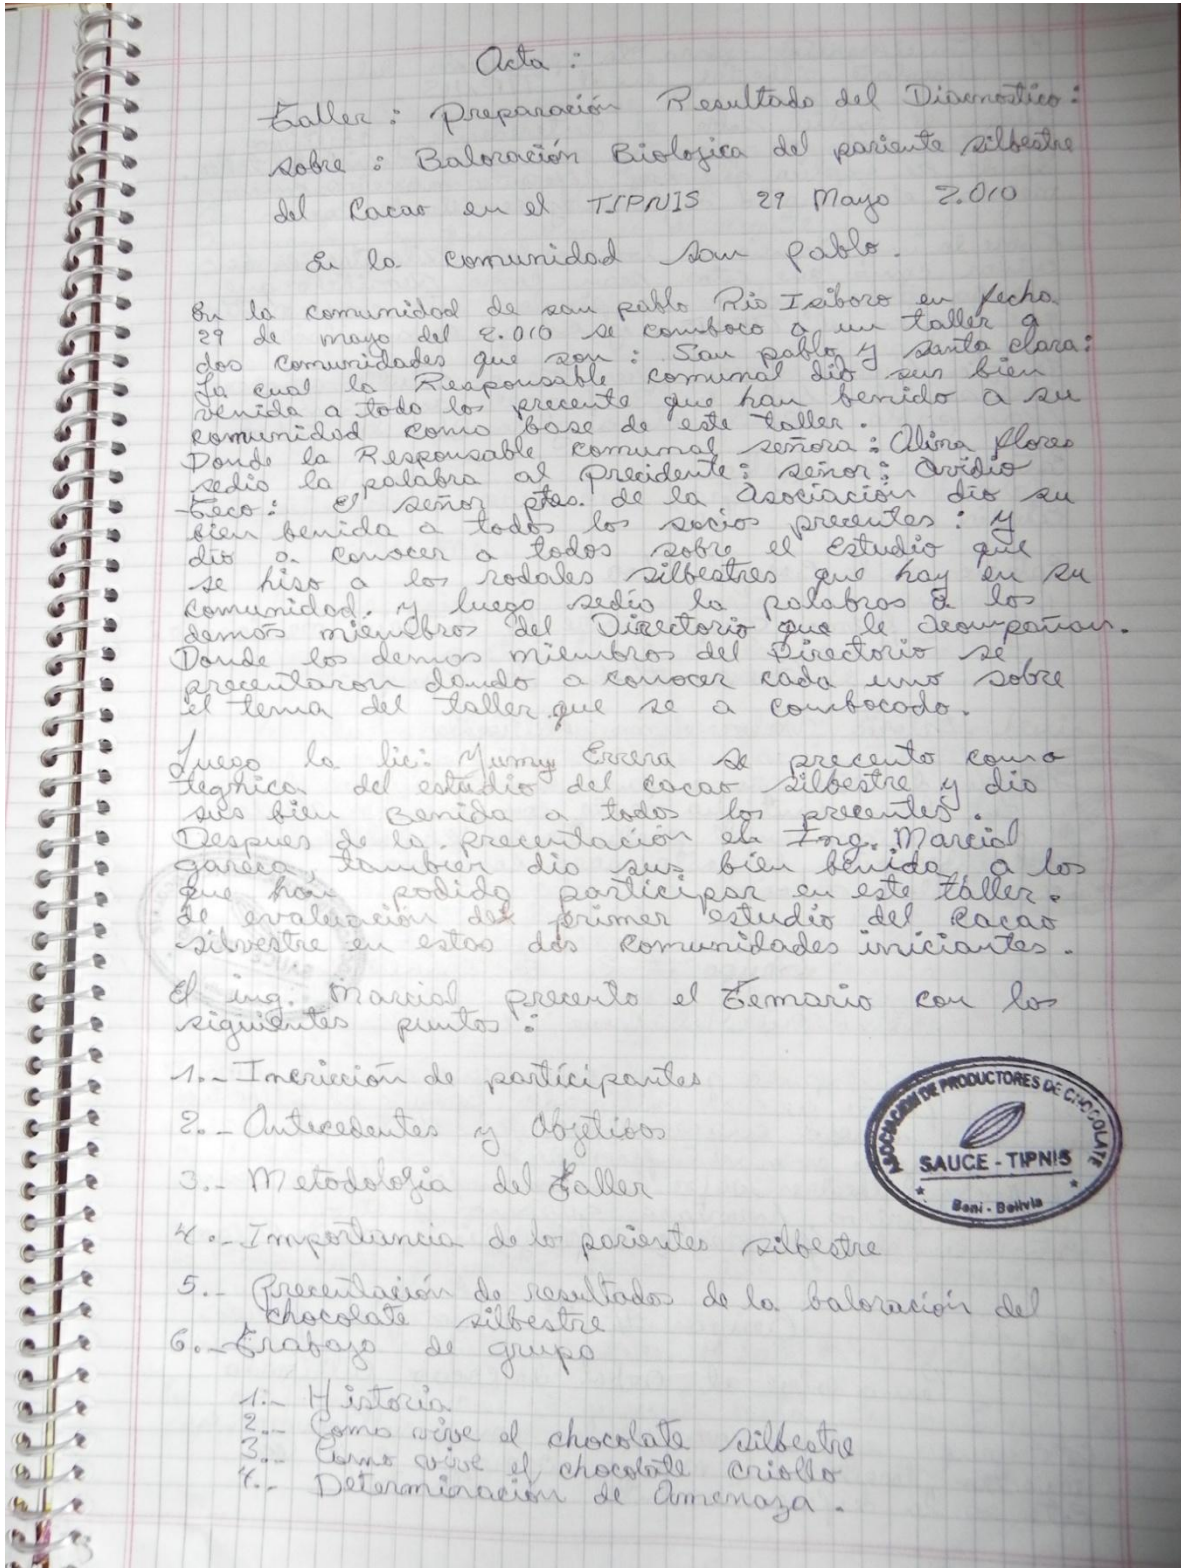 Acta :
Taller : Preparación Resultado del Diacnostico :
sobre : Baloración Biologica del pariente silbestre
del Cacao en el TIPNIS 29 Mayo 2.010
En la comunidad san pablo.
En la comunidad de san pablo Rio Isiboro en fecha
29 de mayo del 2.010 se comboco a un taller a
dos comunidades que son : San pablo y santa clara :
La cual la Responsable comunal dio sus bien
venida a todo los precente que han benido a su
comunidad como base de este taller.
Donde la Responsable comunal señora : Alina flores
sedio la palabra al precidente : señor : Ovidio
Teco : el señor ptes. de la asociación dio su
bien benida a todos los socios precentes : y
dio a conocer a todos sobre el estudio que
se hiso a los rodales silbestres que hay en su
comunidad. y luego sedio la palabras a los
demás miembros del Directorio que le acompañan.
Donde los demas miembros del Directorio se
precentaron dando a conocer cada uno sobre
el tema del taller que se a combocado.
Luego la lic: Yumy Errera se precento como
tegnica del estudio del cacao silbestre y dio
sus bien Benida a todos los precentes.
Despues de la precentación el Ing. Marcial
garcia, tambien dio sus bien benida a los
que han podido participar en este taller.
de evaluación del primer estudio del Cacao
silvestre en estas dos comunidades iniciantes.
El ing. Marcial precento el Temario con los
siguientes puntos :
1.- Incrición de participantes
2.- Antecedentes y Objetivos
3.- Metodologia del Taller
4.- Importancia de los parientes silbestre
5.- Precentación de resultados de la baloración del
chocolate silbestre
6.- Trabajo de grupo
1.- Historia
2.- Como vive el chocolate silbestre
3.- Como vive el chocolate criollo
4.- Determinación de Amenaza.
ASOCIACION DE PRODUCTORES DE CHOCOLATE
SAUCE - TIPNIS
Beni - Bolivia